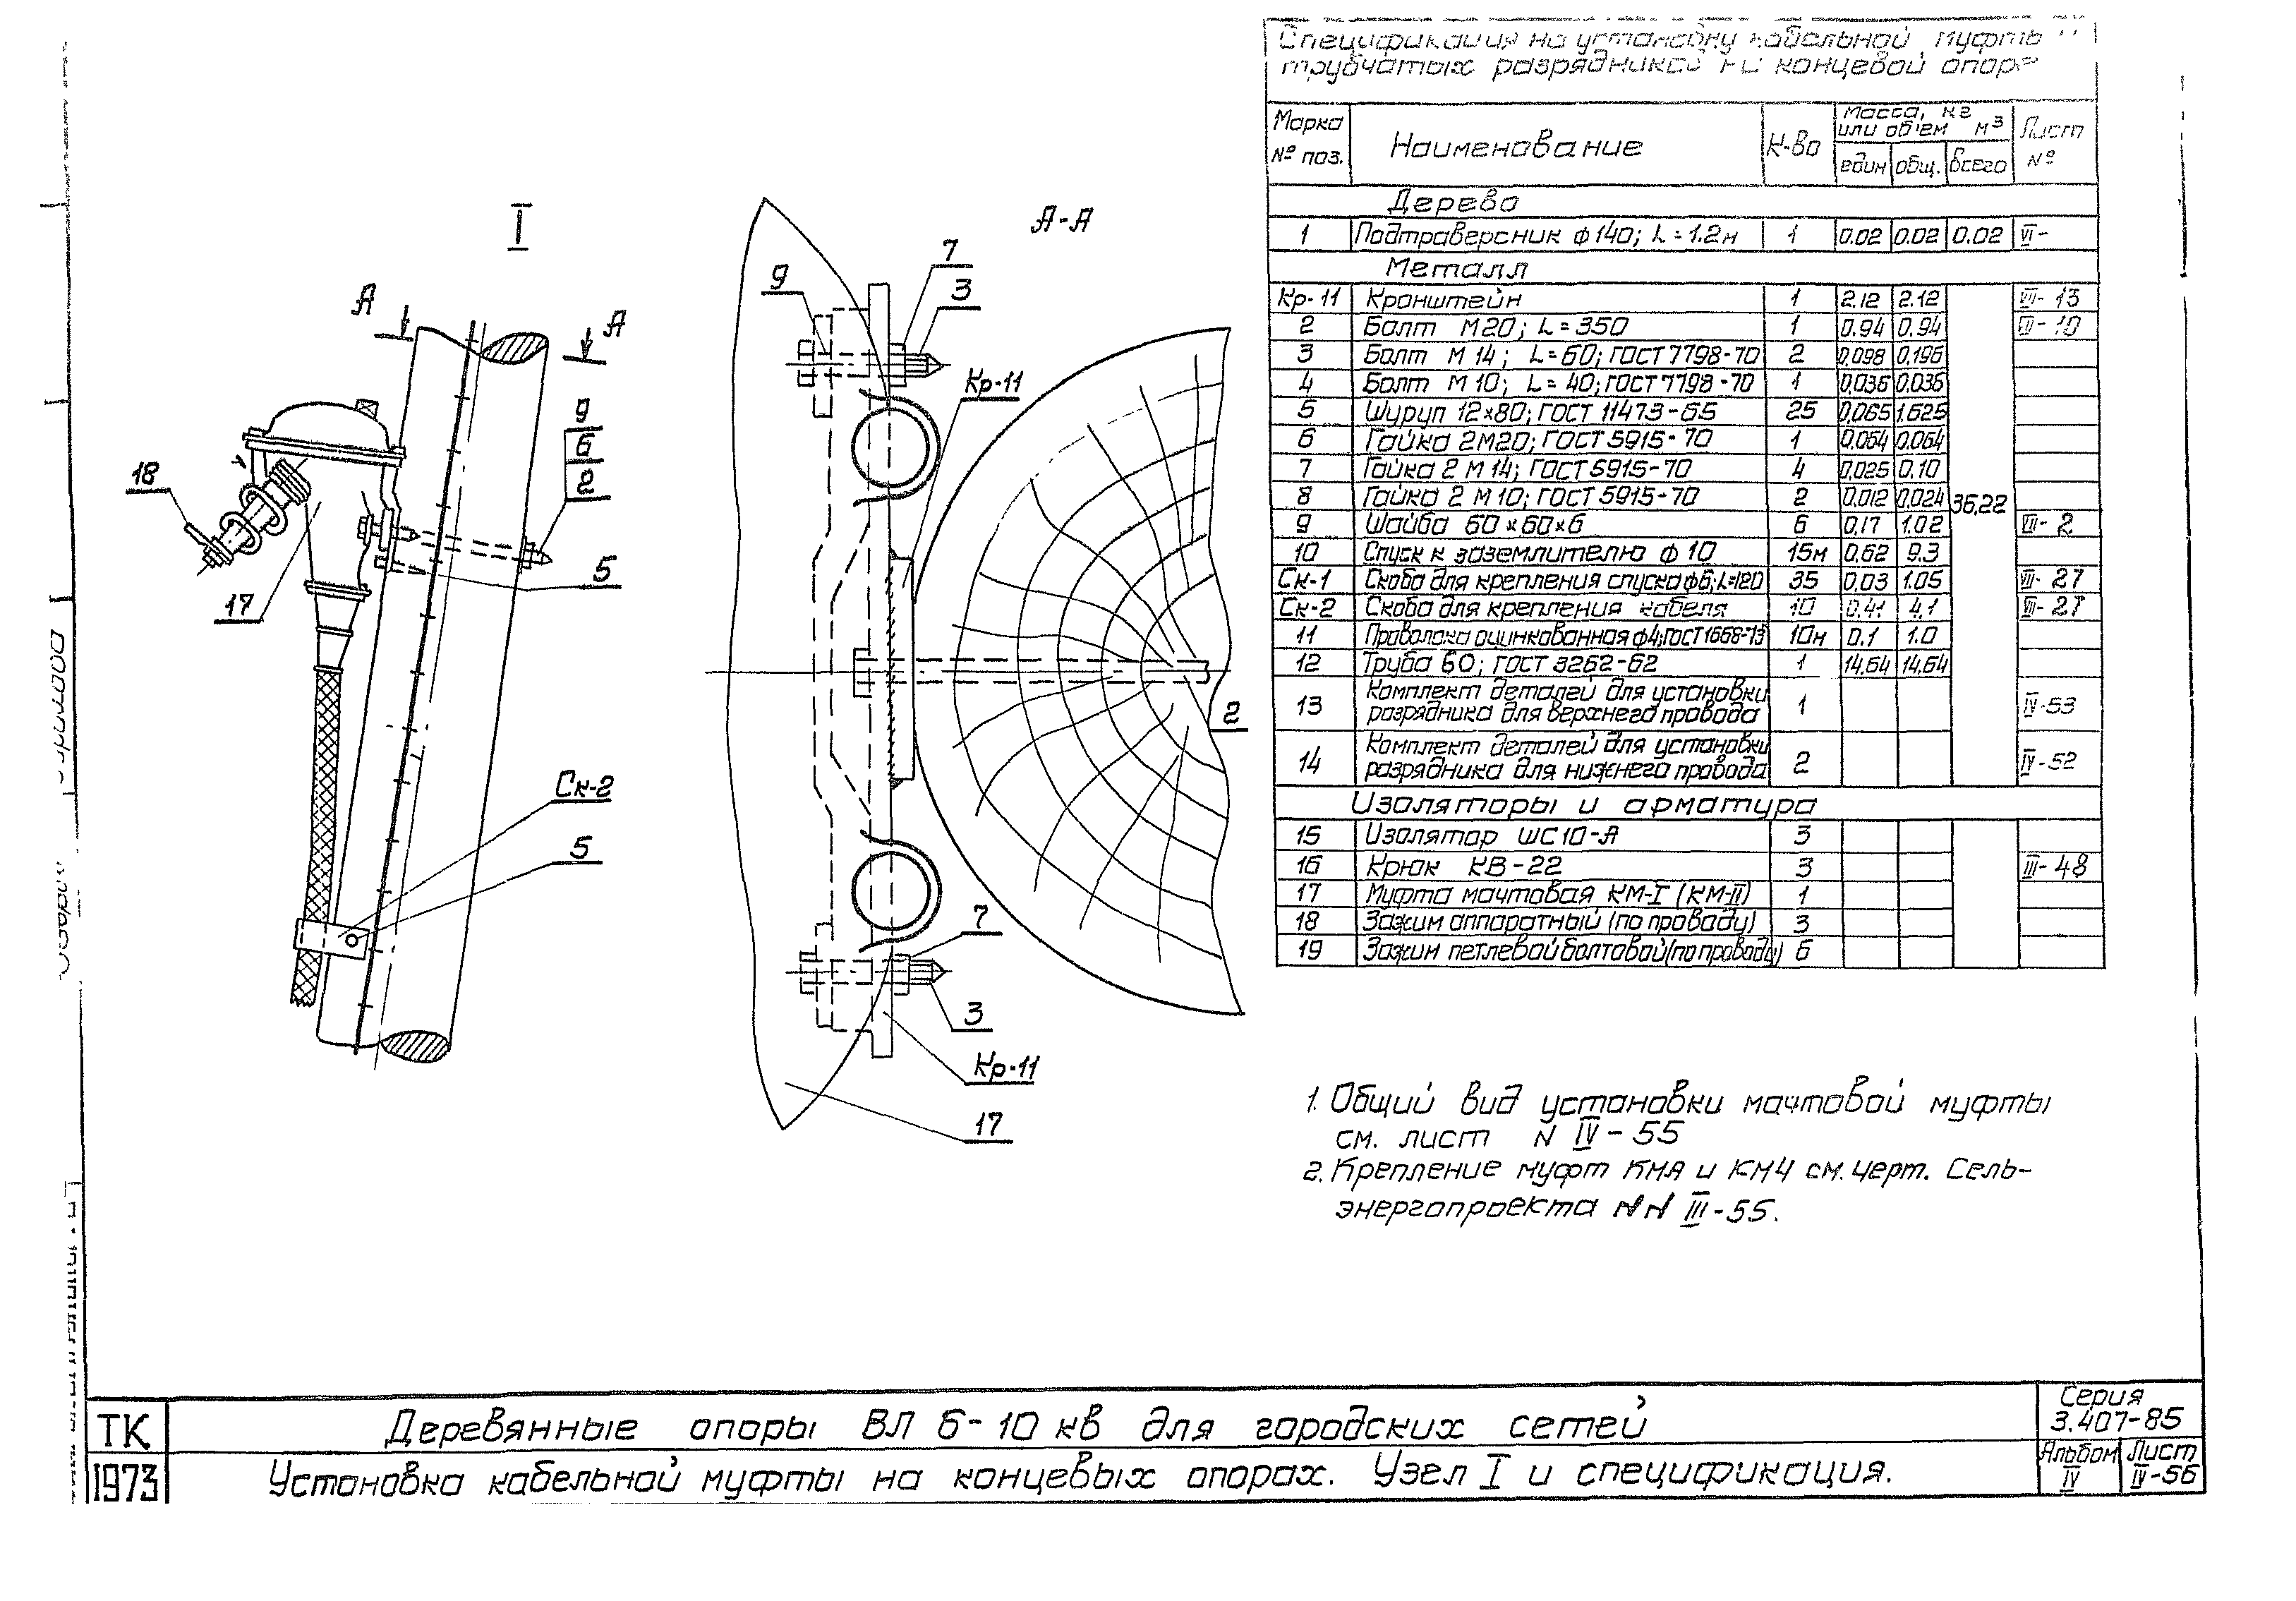 Спецификация на установку кабельной муфты и
трубчатых разрядников на концевой опоре
Марка № поз. | Наименование | К-во | Масса, кг или объем м³ | Лист №
един | общ. | Всего
Дерево
1 | Подтраверсник ф140; L=1.2м | 1 | 0.02 | 0.02 | 0.02 | VI-
Металл
Кр-11 | Кронштейн | 1 | 2.12 | 2.12 | VII-13
2 | Болт М20; L=350 | 1 | 0.94 | 0.94 | -10
3 | Болт М14; L=60; ГОСТ 7798-70 | 2 | 0,098 | 0,196
4 | Болт М10; L=40; ГОСТ 7798-70 | 1 | 0,036 | 0,036
5 | Шуруп 12×80; ГОСТ 11473-65 | 25 | 0,065 | 1.625
6 | Гайка 2М20; ГОСТ 5915-70 | 1 | 0,064 | 0,064
7 | Гайка 2М14; ГОСТ 5915-70 | 4 | 0,025 | 0.10
8 | Гайка 2М10; ГОСТ 5915-70 | 2 | 0,012 | 0,024 | 36,22
9 | Шайба 60×60×6 | 6 | 0,17 | 1.02 | VII-2
10 | Спуск к заземлителю ф10 | 15м | 0.62 | 9.3
Ск-1 | Скоба для крепления спуска ф6; L=120 | 35 | 0.03 | 1.05 | VII-27
Ск-2 | Скоба для крепления кабеля | 10 | 0.41 | 4.1 | VII-27
11 | Проволока оцинкованная ф4; ГОСТ 1668-73 | 10м | 0.1 | 1.0
12 | Труба 60; ГОСТ 3262-62 | 1 | 14,64 | 14,64
13 | Комплект деталей для установки
разрядника для верхнего провода | 1 | IV-53
14 | Комплект деталей для установки
разрядника для нижнего провода | 2 | IV-52
Изоляторы и арматура
15 | Изолятор ШС10-А | 3
16 | Крюк КВ-22 | 3 | III-48
17 | Муфта мачтовая КМ-I (КМ-II) | 1
18 | Зажим аппаратный (по проводу) | 3
19 | Зажим петлевой болтовой (по проводу) | 6
I
А
А
9
6
2
18
17
5
Ск-2
5
А-А
7
9
3
Кр-11
2
7
3
Кр-11
17
1. Общий вид установки мачтовой муфты
см. лист N IV-55
2. Крепление муфт КМА и КМЧ см. черт. Сель-
энергопроекта NN III-55.
ТК
1973
Деревянные опоры ВЛ 6-10 кв для городских сетей
Установка кабельной муфты на концевых опорах. Узел I и спецификация.
Серия
3.407-85
Альбом IV
Лист IV-56